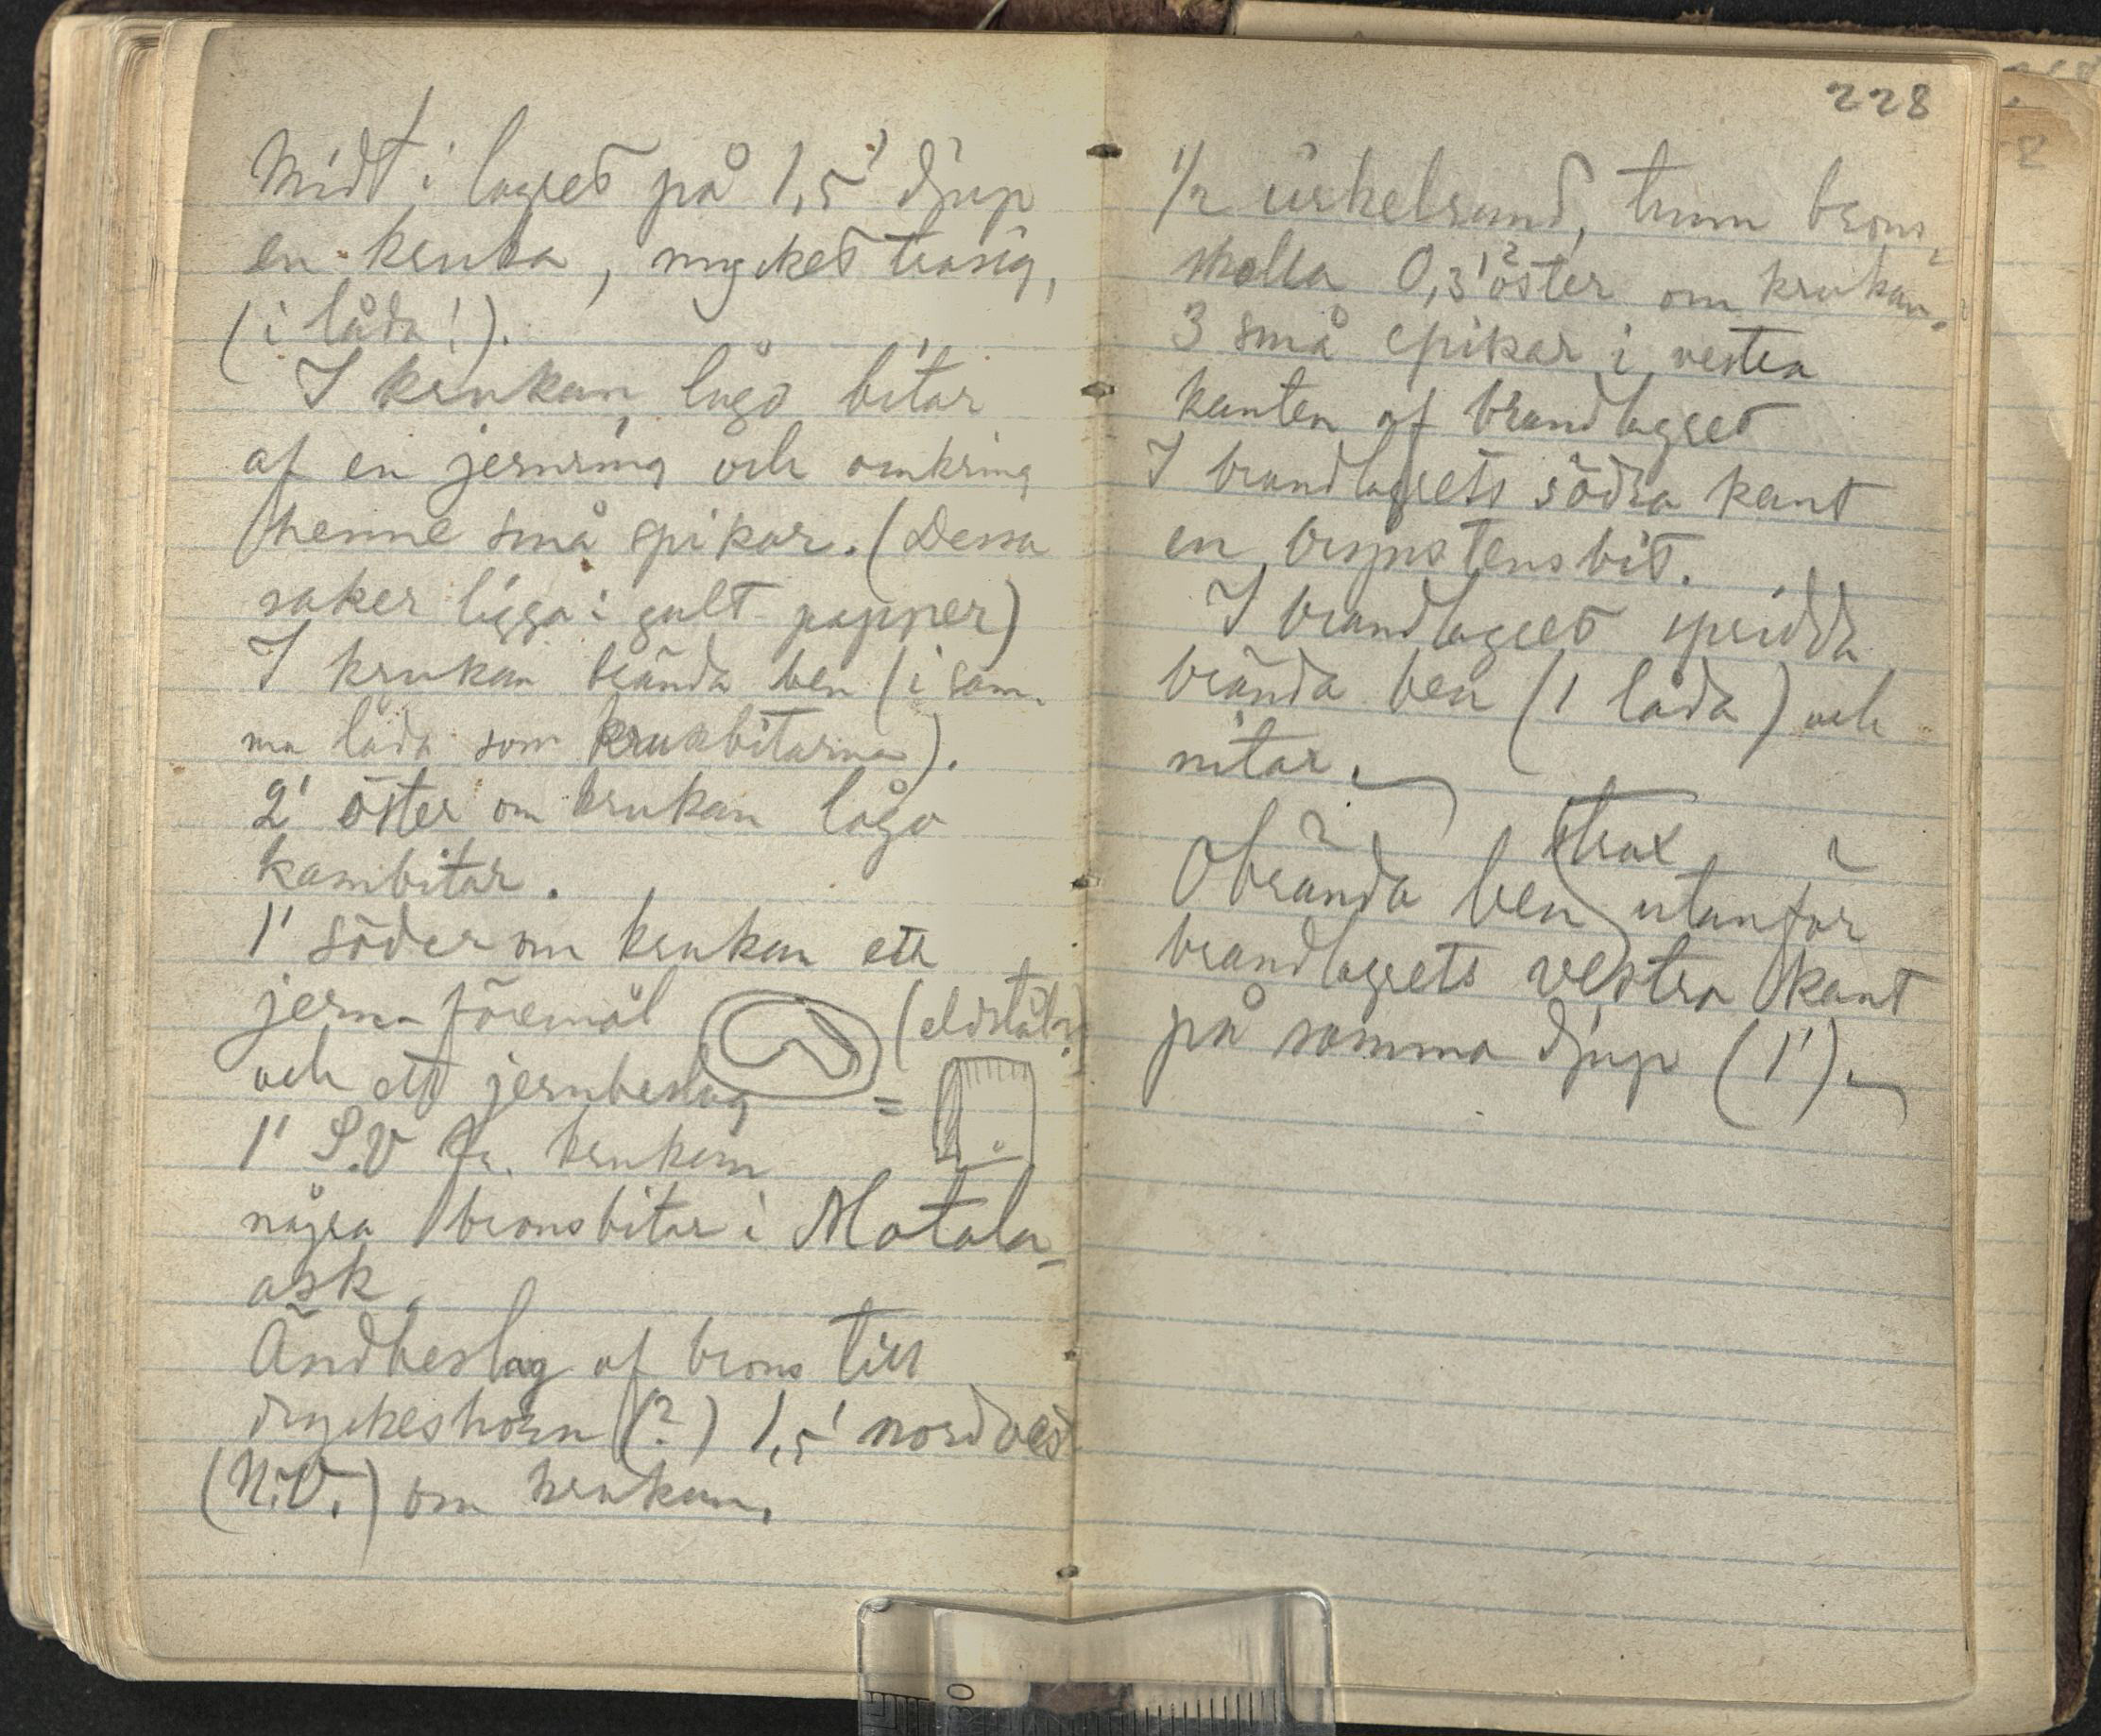 Midt i lagret på 1,5' djup
en kruka, mycket trasig,
(i låda!).
I krukan lågo bitar
af en jernring och omkring
henne små spikar. (Dessa
saker ligga i gult papper)
I krukan brända ben (i sam-
ma låda som krukbitarna).
2' öster om krukan lågo
kambitar.
1' söder om krukan ett
jern-föremål (eldstål?)
och ett jernbeslag =
1' S.V fr. krukan
några bronsbitar i Motala-
ask.
Ändbeslag af brons till
dryckeshorn (?) 1,5' nordvest
(N.V.) om krukan.
228
1/2 cirkelrund, tunn brons-
skolla 0,3' öster om krukan.
3 små spikar i vestra
kanten af brandlagret
I brandlagrets södra kant
en brynstensbit.
I brandlagret spridda
brända ben (1 låda) och
nitar.
strax
Obrända ben utanför
brandlagrets vestra kant
på samma djup (1').